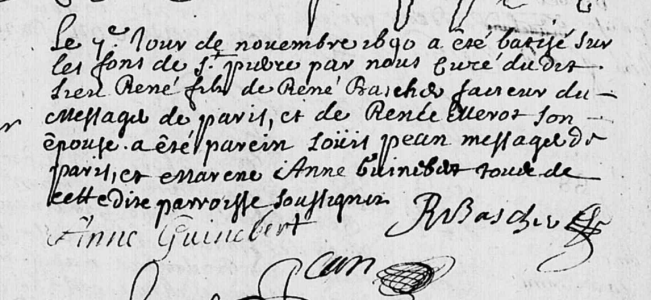 Le 7.e Jour de novembre 1690 a été batisé sur
les fons de st. pierre par nous curé dudit
lieu René fils de René Bascher facteur du
Messager de paris, et de Renée Merot son
épouse. a été parein Loüis pean messager de
paris, et marene Anne Guinebert tous de
cettedite parroisse soussignez
Anne Guinebert
RBascher
Pean